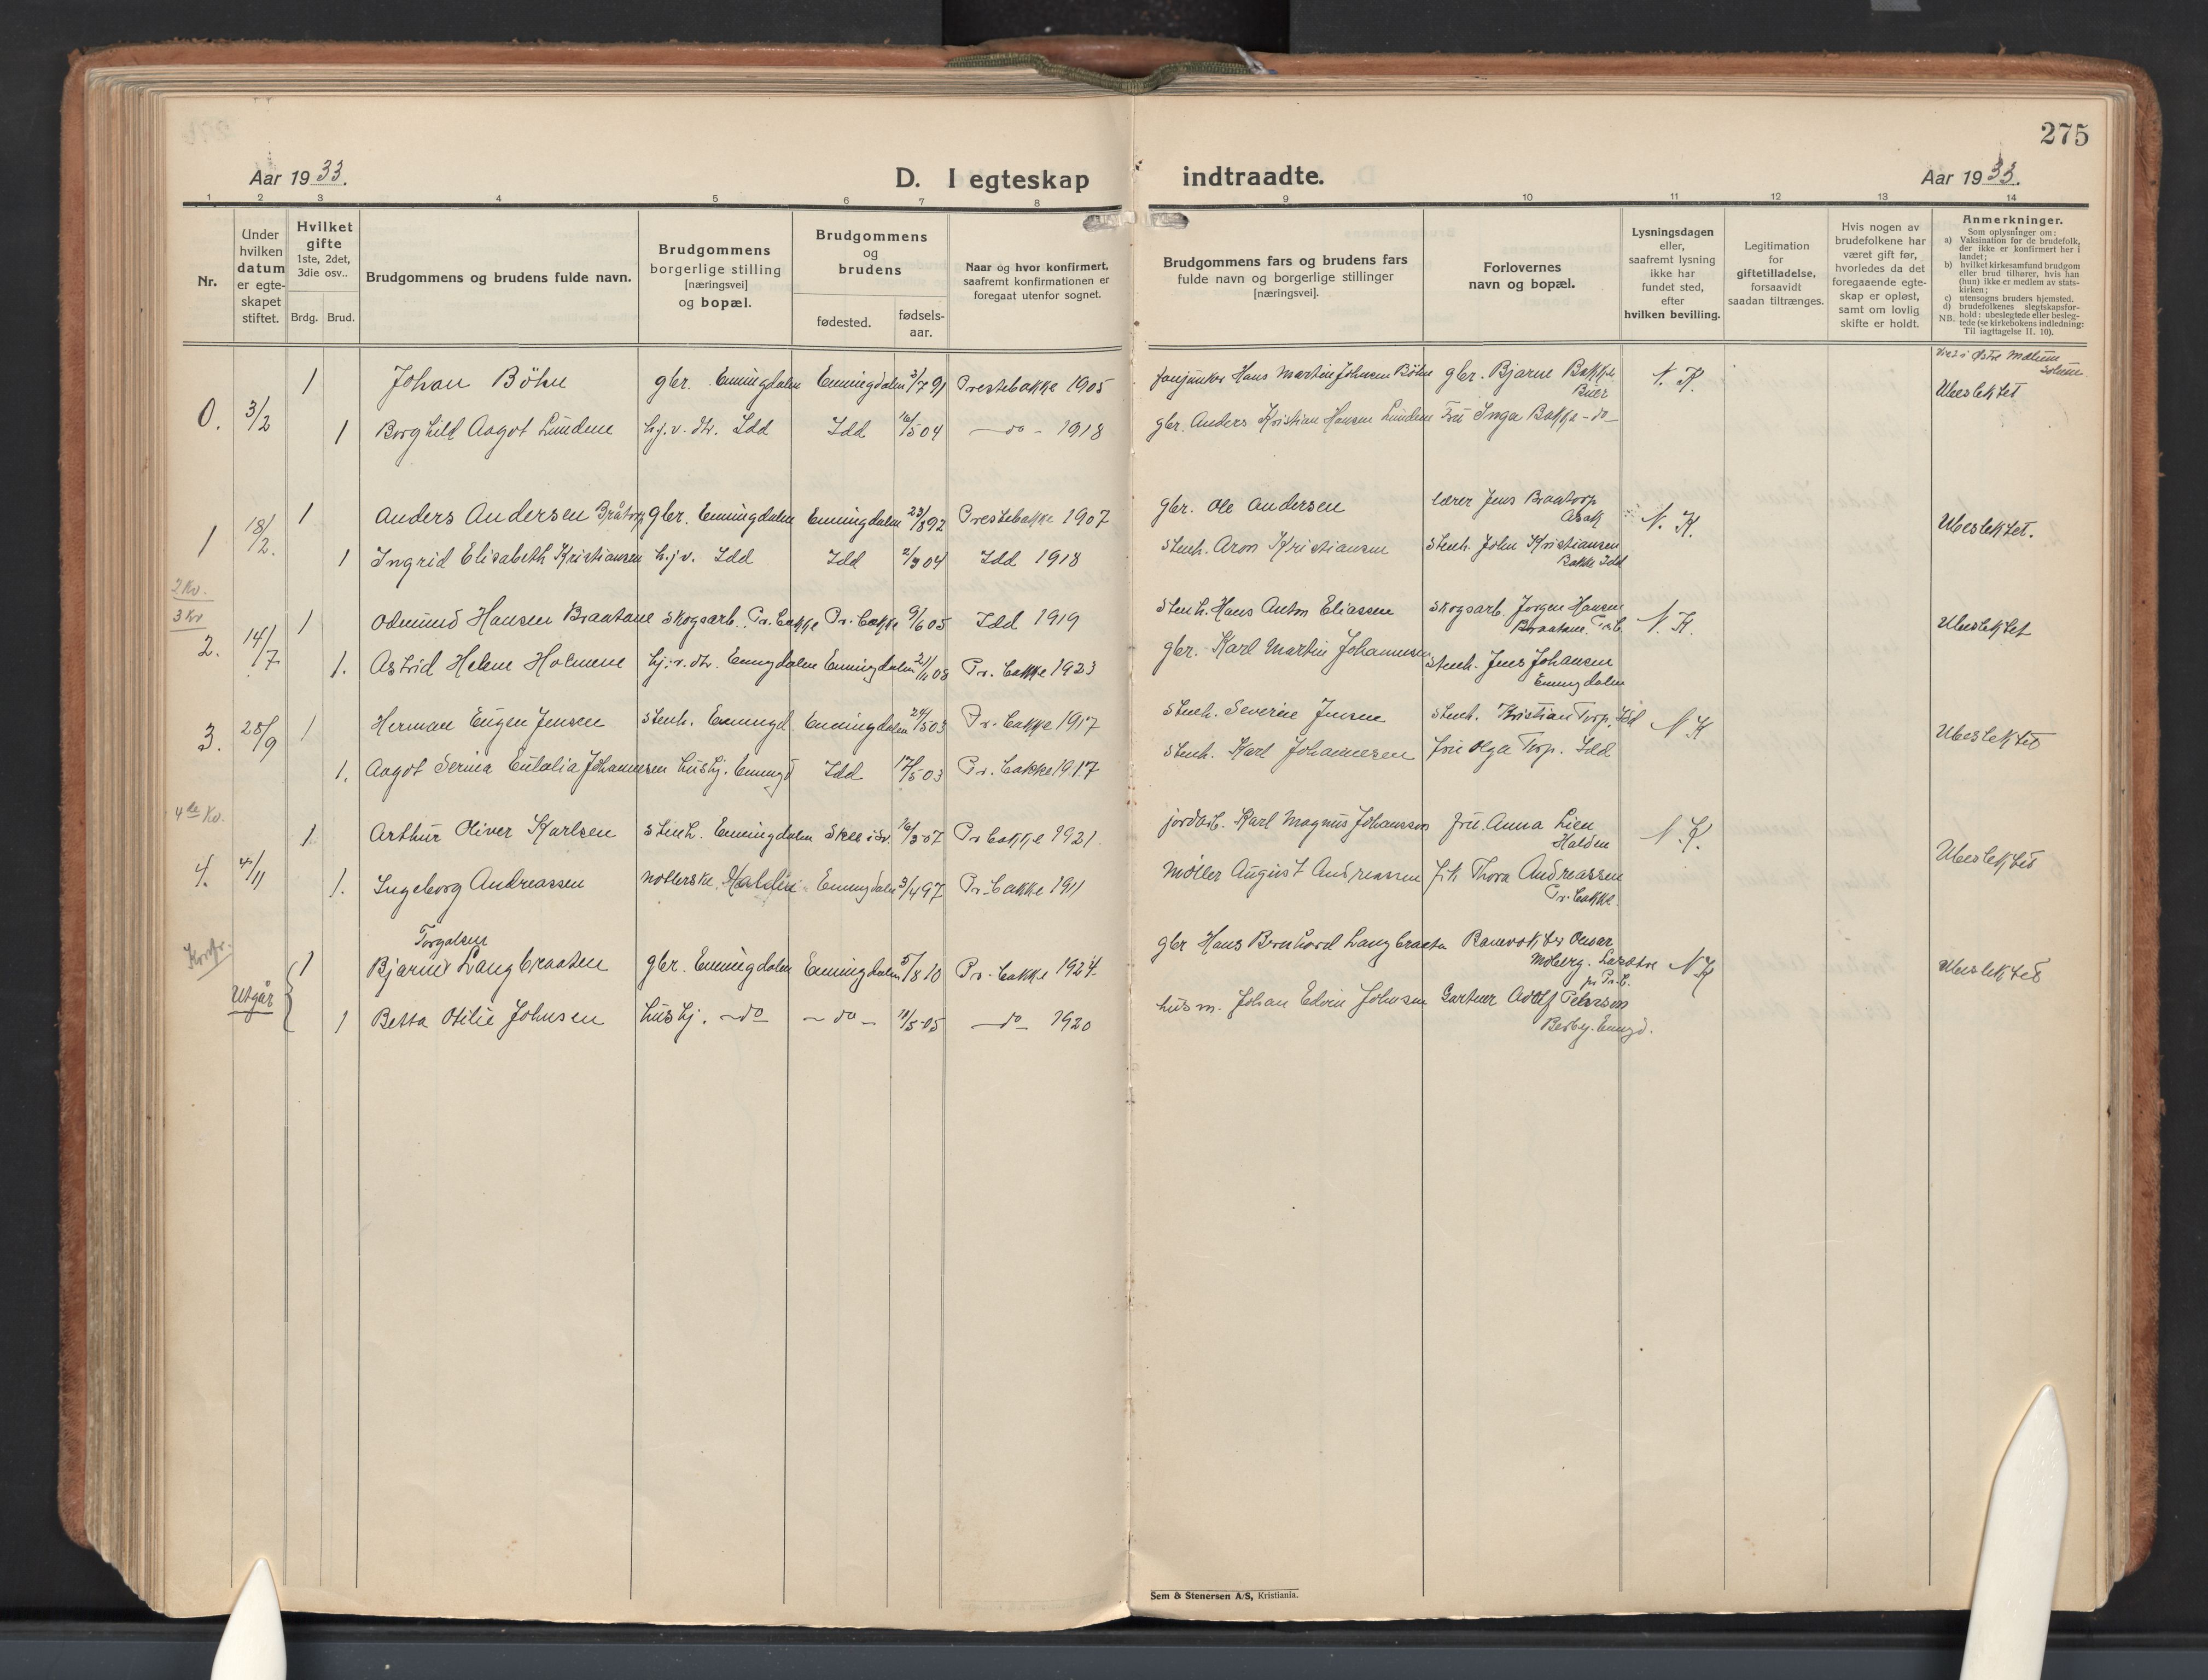 275
Aar 1933.
D. I egteskap
indtraadte.
Aar 1933.
1 2 3 4 5 6 7 8 9 10 11 12 13 14
Nr.
Under hvilken datum er egte- skapet stiftet.
Hvilket gifte 1ste, 2det, 3die osv..
Brdg. Brud.
Brudgommens og brudens fulde navn.
Brudgommens borgerlige stilling [næringsvei] og bopæl.
Brudgommens og brudens
fødested.
fødsels- aar.
Naar og hvor konfirmert, saafremt konfirmationen er foregaat utenfor sognet.
Brudgommens fars og brudens fars fulde navn og borgerlige stillinger [næringsvei].
Forlovernes navn og bopæl.
Lysningsdagen eller, saafremt lysning ikke har fundet sted, efter hvilken bevilling.
Legitimation for giftetilladelse, forsaavidt saadan tiltrænges.
Hvis nogen av brudefolkene har været gift før, hvorledes da det foregaaende egte- skap er opløst, samt om lovlig skifte er holdt.
Anmerkninger.
Som oplysninger om:
a) Vaksination for de brudefolk, der ikke er konfirmert her i landet;
b) hvilket kirkesamfund brudgom eller brud tilhører, hvis han (hun) ikke er medlem av stats- kirken;
c) utensogns bruders hjemsted.
d) brudefolkenes slegtskapsfor- hold: ubeslegtede eller besleg- tede (se kirkebokens indledning: Til iagttagelse II. 10).
NB.
1 Johan Böhn gbr. Enningdalen Enningdalen 3/7 91 Prestebakke 1905 fanejunker Hans Martin Johnsen Böhn gbr. Bjarne Bakke Buer N. K. Ubeslektet
0. 3/2
1 Borghild Aagot Lundene hj.v. dtr. Idd Idd 16/5 04 —do— 1918 gbr. Anders Kristian Hansen Lundene Fru Inga Bakke —do—
1 Anders Andersen Bråtorp gbr. Enningdalen Enningdalen 23/8 92 Prestebakke 1907 gbr. Ole Andersen lærer Jens Braatorp Asak N. K. Ubeslektet.
1 18/2.
1 Ingrid Elisabeth Kristiansen hj.v. Idd Idd 2/3 04 Idd 1918 stenh. Aron Kristiansen stenh. John Kristiansen Bakke Idd
2 Kv.
3 Kv
1 Odmund Hansen Braatane skogsarb. Pr. bakke Pr. bakke 9/6 05 Idd 1919 stenh. Hans Anton Eliassen skogsarb. Jørgen Hansen Braatane. Pr.b. N. K. Ubeslektet
2. 14/7
1. Astrid Helene Holmene hj.v. dtr. Enngdalen Enningdalen 21/11 08 Pr. bakke 1923 gbr. Karl Martin Johannesen stenh. Jens Johansen Enningdalen
3. 28/9 1 Herman Eugen Jensen stenh. Enningd. Enningdalen 24/5 03 Pr. bakke 1917 stenh. Severin Jensen stenh. Kristian Torp, Idd N K Ubeslektet
1. Aagot Serina Eutalia Johannesen hushj. Enningd Idd 17/5 03 Pr. bakke 1917 stenh. Karl Johannesen fru Olga Torp. Idd
4de Kv.
1 Arthur Oliver Karlsen stenh. Enningdalen Skee i Sv. 16/3 07 Pr bakke 1921. jordarb. Karl Magnus Johansson fru Anna Lien Halden N. K. Ubeslektet
4. 4/11
1. Ingeborg Andreassen Halden Enningdalen 3/4 97 Pr. bakke 1911 møller August Andreassen frk Thora Andreassen Pr. bakke.
Torgalsen
1 Bjarne Langbraaten gbr. Enningdalen Enningdalen 5/8 10 Pr. bakke 1924. gbr Hans Bernhard Langbraaten Banevokter Omar Moberg. N K Ubeslektet
Utgår
1 Betta Otilie Johnsen hushj. —do— —do— 10/5-05 —do— 1920 husm. Johan Edvin Johnsen Gartner Adolf Peterson Berby. Enngd.
Sem & Stenersen A/S, Kristiania.